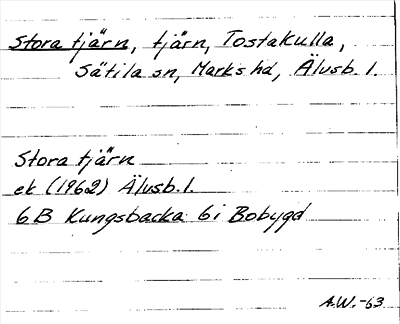 Stora tjärn, tjärn, Tostakulla,
Sätila sn, Marks hd, Älvsb. l.
Stora tjärn
ek (1962) Älvsb. l.
6B Kungsbacka 6i Bobygd
A.W.-63